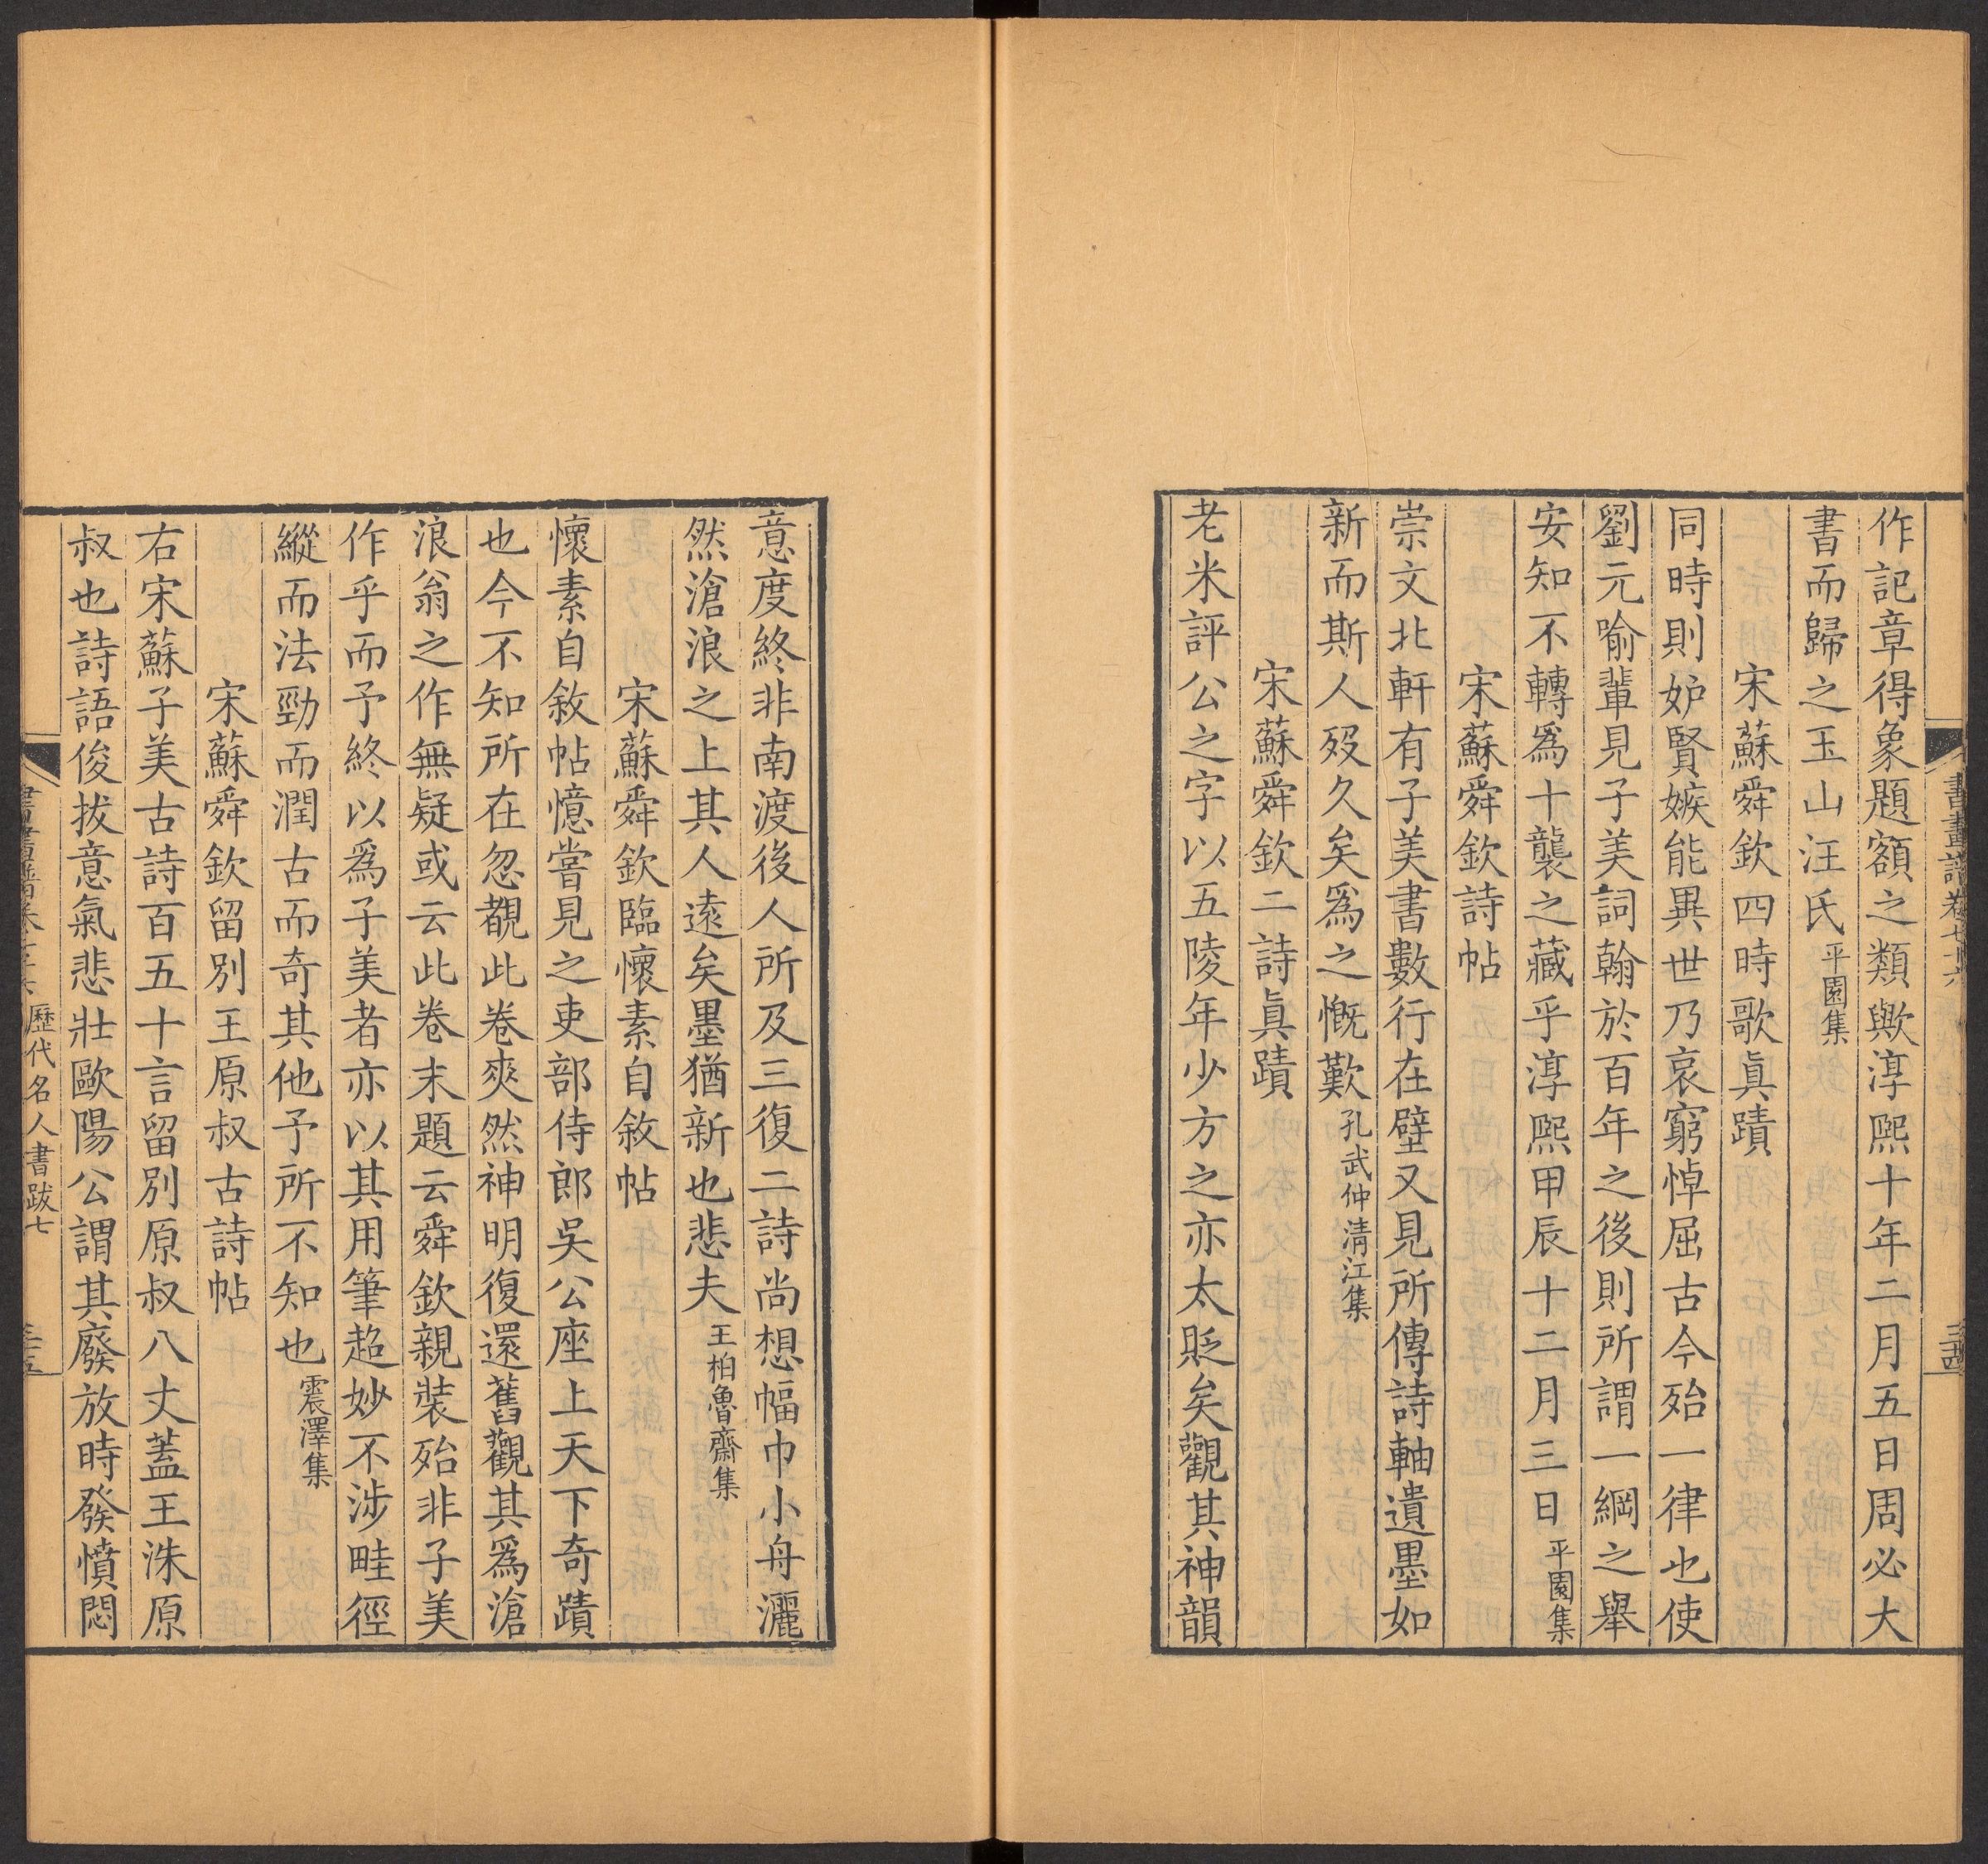 書畫譜卷七十六
三十四
作記章得象題額之類歟淳熙十年二月五日周必大
書而歸之玉山汪氏平園集
宋蘇舜欽四時歌眞蹟
同時則妒賢嫉能異世乃哀窮悼屈古今殆一律也使
劉元喻輩見子美詞翰於百年之後則所謂一綱之舉
安知不轉爲十襲之藏乎淳熙甲辰十二月三日平園集
宋蘇舜欽詩帖
崇文北軒有子美書數行在壁又見所傳詩軸遺墨如
新而斯人歿久矣爲之慨歎孔武仲淸江集
宋蘇舜欽二詩眞蹟
老米評公之字以五陵年少方之亦太貶矣觀其神韻
意度終非南渡後人所及三復二詩尚想幅巾小舟灑
然滄浪之上其人遠矣墨猶新也悲夫王柏魯齋集
宋蘇舜欽臨懷素自敘帖
懷素自敘帖憶嘗見之吏部侍郎吳公座上天下奇蹟
也今不知所在忽覩此卷爽然神明復還舊觀其爲滄
浪翁之作無疑或云此卷末題云舜欽親裝殆非子美
作乎而予終以爲子美者亦以其用筆超妙不涉畦徑
縱而法勁而潤古而奇其他予所不知也震澤集
宋蘇舜欽留別王原叔古詩帖
右宋蘇子美古詩百五十言留別原叔八丈蓋王洙原
叔也詩語俊拔意氣悲壯歐陽公謂其廢放時發憤悶
書畫譜卷七十六 歷代名人書跋七
三十五